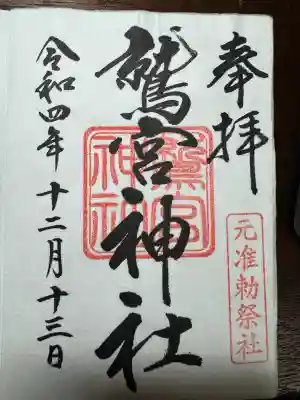 奉拝
元准勅祭社
鷲宮神社
令和四年十二月十三日